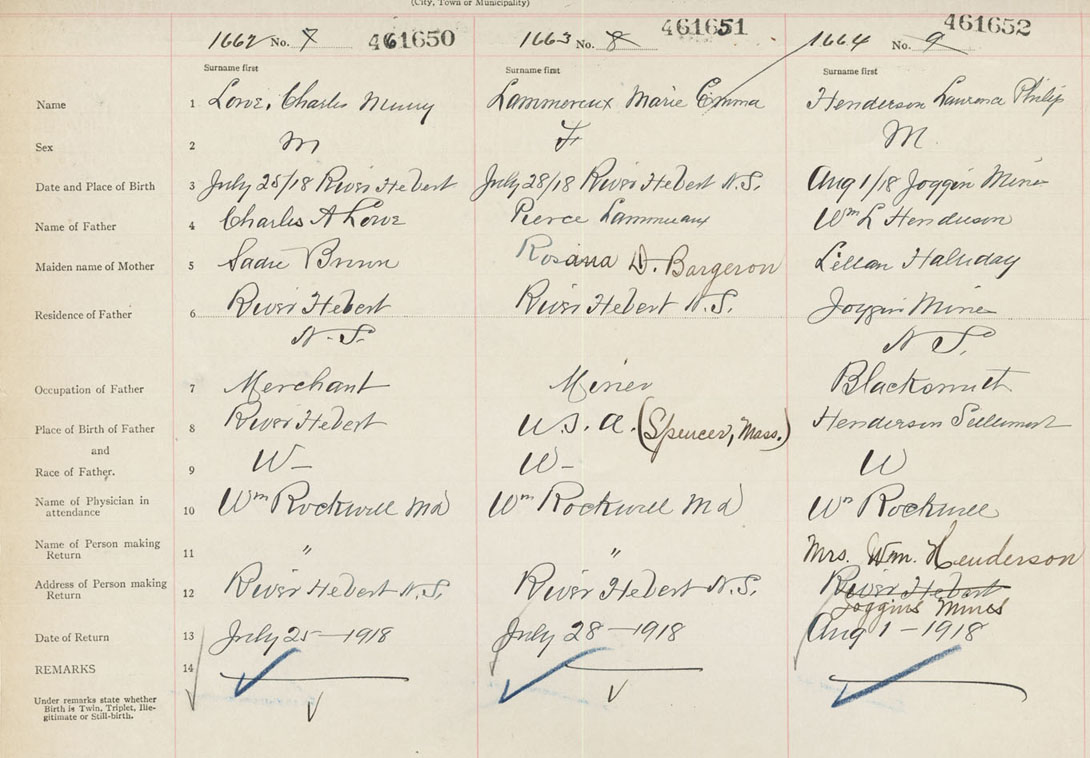 (City, Town or Municipality)
1662 No. 7 461650 1663 No. 8 461651 1664 No. 9 461652
Surname first Surname first Surname first
Name 1 Lowe, Charles Murry Lammereux Marie Emma Henderson Laurence Philip
Sex 2 M F M
Date and Place of Birth 3 July 25/18 River Hebert July 28/18 River Hebert N.S. Aug 1/18 Joggin Mine
Name of Father 4 Charles A Lowe Pierce Lammeaux Wm L Henderson
Maiden name of Mother 5 Sadie Brown Rosanna D. Bargeron Lillian Haliday
Residence of Father 6 River Hebert River Hebert N.S. Joggin Mine
N.S. N S.
Occupation of Father 7 Merchant Miner Blacksmith
Place of Birth of Father 8 River Hebert U.S. A. (Spencer, Mass.) Henderson Settlement
and
Race of Father. 9 W- W- W
Name of Physician in attendance 10 Wm Rockwell Md Wm Rockwell Md Wm Rockwell
Name of Person making Return 11 " " Mrs. Wm. Henderson
Address of Person making Return 12 River Hebert N.S. River Hebert N.S. River Hebert
Joggins Mines
Date of Return 13 July 25-1918 July 28-1918 Aug 1-1918
REMARKS 14
Under remarks state whether
Birth is Twin, Triplet, Ille-
gitimate or Still-birth.